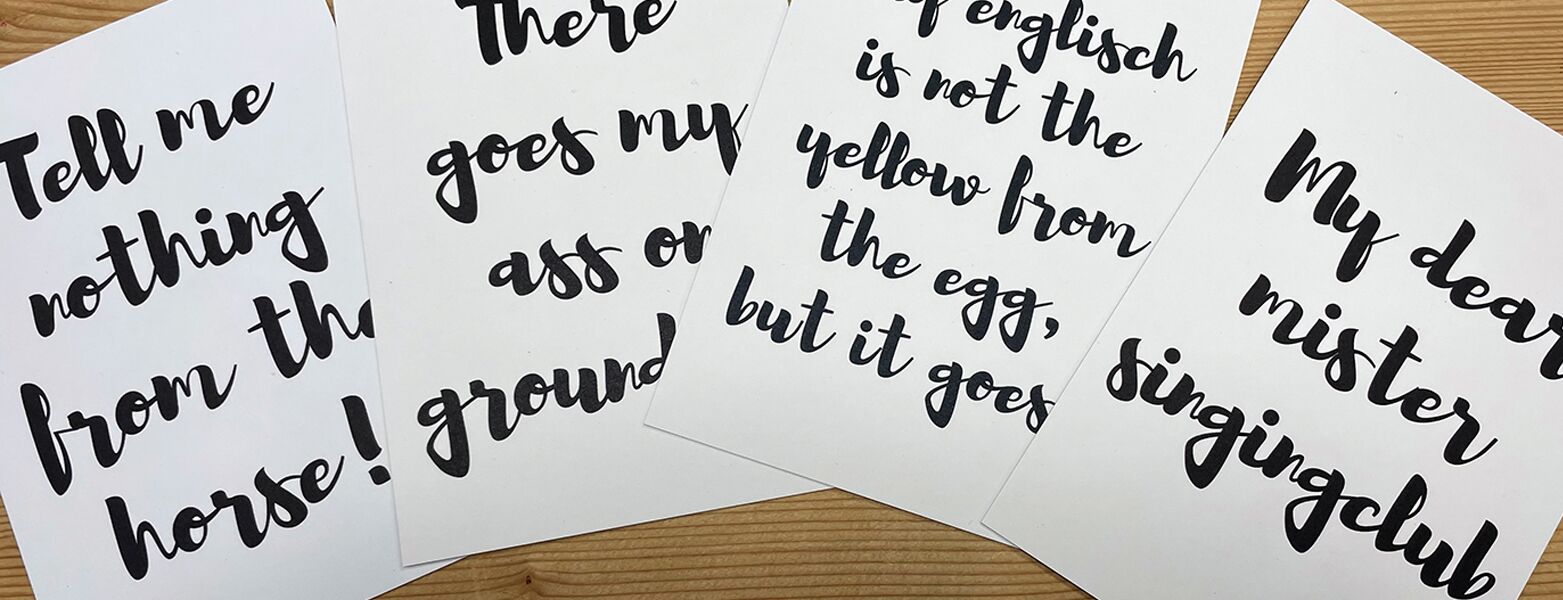 Tell me
nothing
from the
horse!
There
goes my
ass on
ground
englisch
is not the
yellow from
the egg,
but it goes
My dear
mister
singingclub